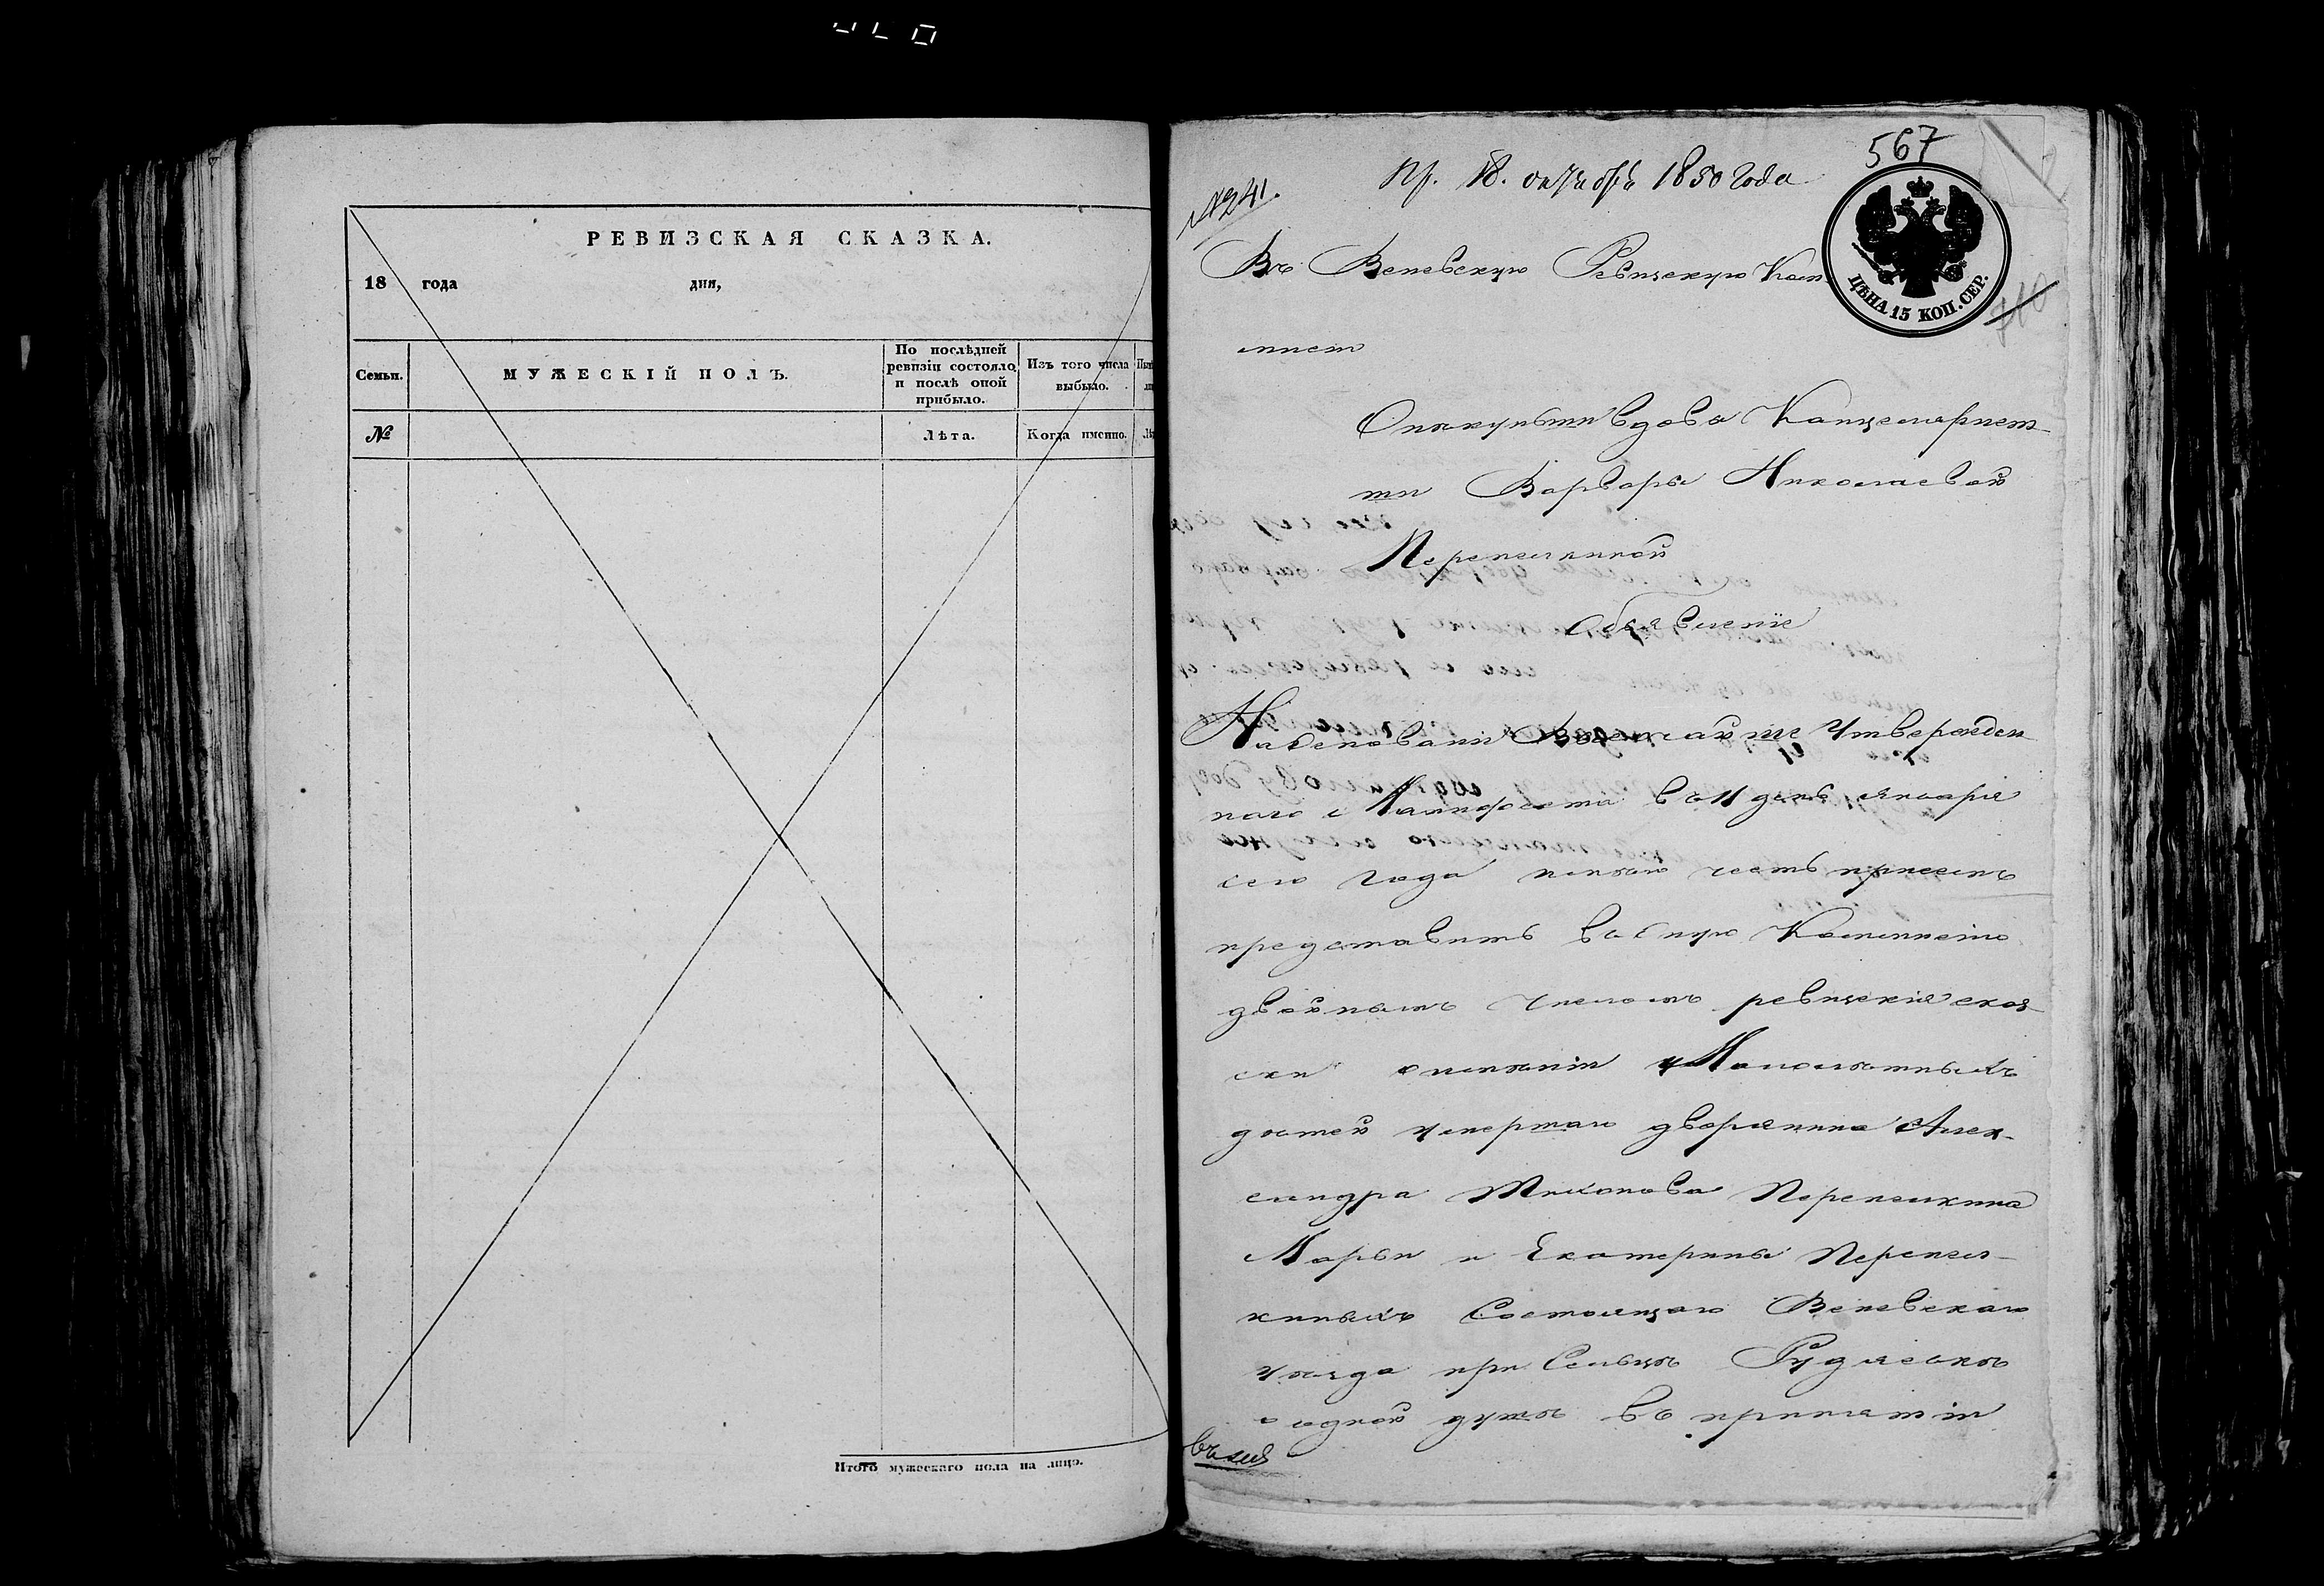 РЕВИЗСКАЯ СКАЗКА.
18 года дня,
Семьи.
МУЖЕСКІЙ ПОЛЪ.
По послѣдней
ревизіи состояло
и послѣ оной
прибыло.
Изъ того числа
выбыло.
№
Лѣта.
Когда именно.
Итого мужескаго пола на лицо.
567
Пр. 18. октября 1850 года
№241.
Въ Веневскую Ревизскую Ком
ЦѢНА 15 КОП. СЕР.
мисію
Опекунши вдовы Канцелярист
ши Варвары Николаевой
Перепелкиной
Объявленіе
На основаніи Высочайше Утвержден
наго Манифеста въ 11 день января
сего года имѣю честь при семъ
представить въ оную Коммисію
двойнымъ числомъ ревизскія сказ
ски имѣніи Малолѣтныхъ
дѣтей умершаго дворянина Алек
сандра Тихонова Перепелкина
Марьи и Екатерины Перепел
киныхъ Состоящаго Веневскаго
уѣзда при Сельцѣ
о одной душѣ въ принятіи